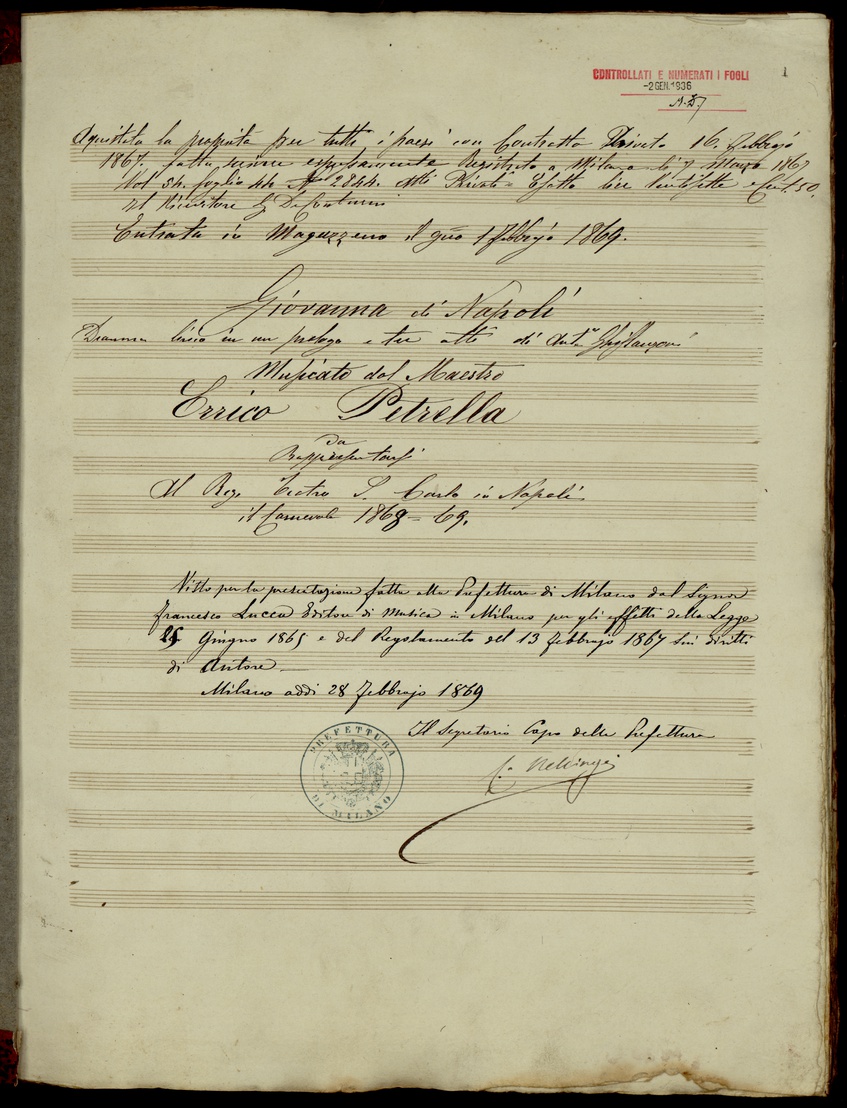 CONTROLLATI E NUMERATI I FOGLI
1
-2 GEN. 1936
Aquistata la proprietà per tutti i paesi con Contratto Privato 16. Febbrajo
1867. fatta Registrato a Milano li 7 Marzo 1867
Vol 54. foglio 44 N 2844. Atti Privati Esatto lire Ventisette e Cent. 50.
Il Ricevitore
Entrata in Magazzeno il gno 1 Febbrajo 1869.
Giovanna di Napoli
Dramma lirico in un prologo e tre atti di Ant.o Ghislanzoni
Musicato dal Maestro
Errico Petrella
da
Rappresentarsi
Al Reg. Teatro S. Carlo in Napoli
il Carnevale 1868-69.
Visto per la presentazione fatta alla Prefettura di Milano dal Signor
Francesco Lucca Editore di Musica in Milano per gli effetti della Legge
25 Giugno 1865 e del Regolamento del 13 Febbrajo 1867 sui diritti
di Autore
Milano addi 28 Febbrajo 1869
Il Segretario Capo della Prefettura
PREFETTURA
DI MILANO